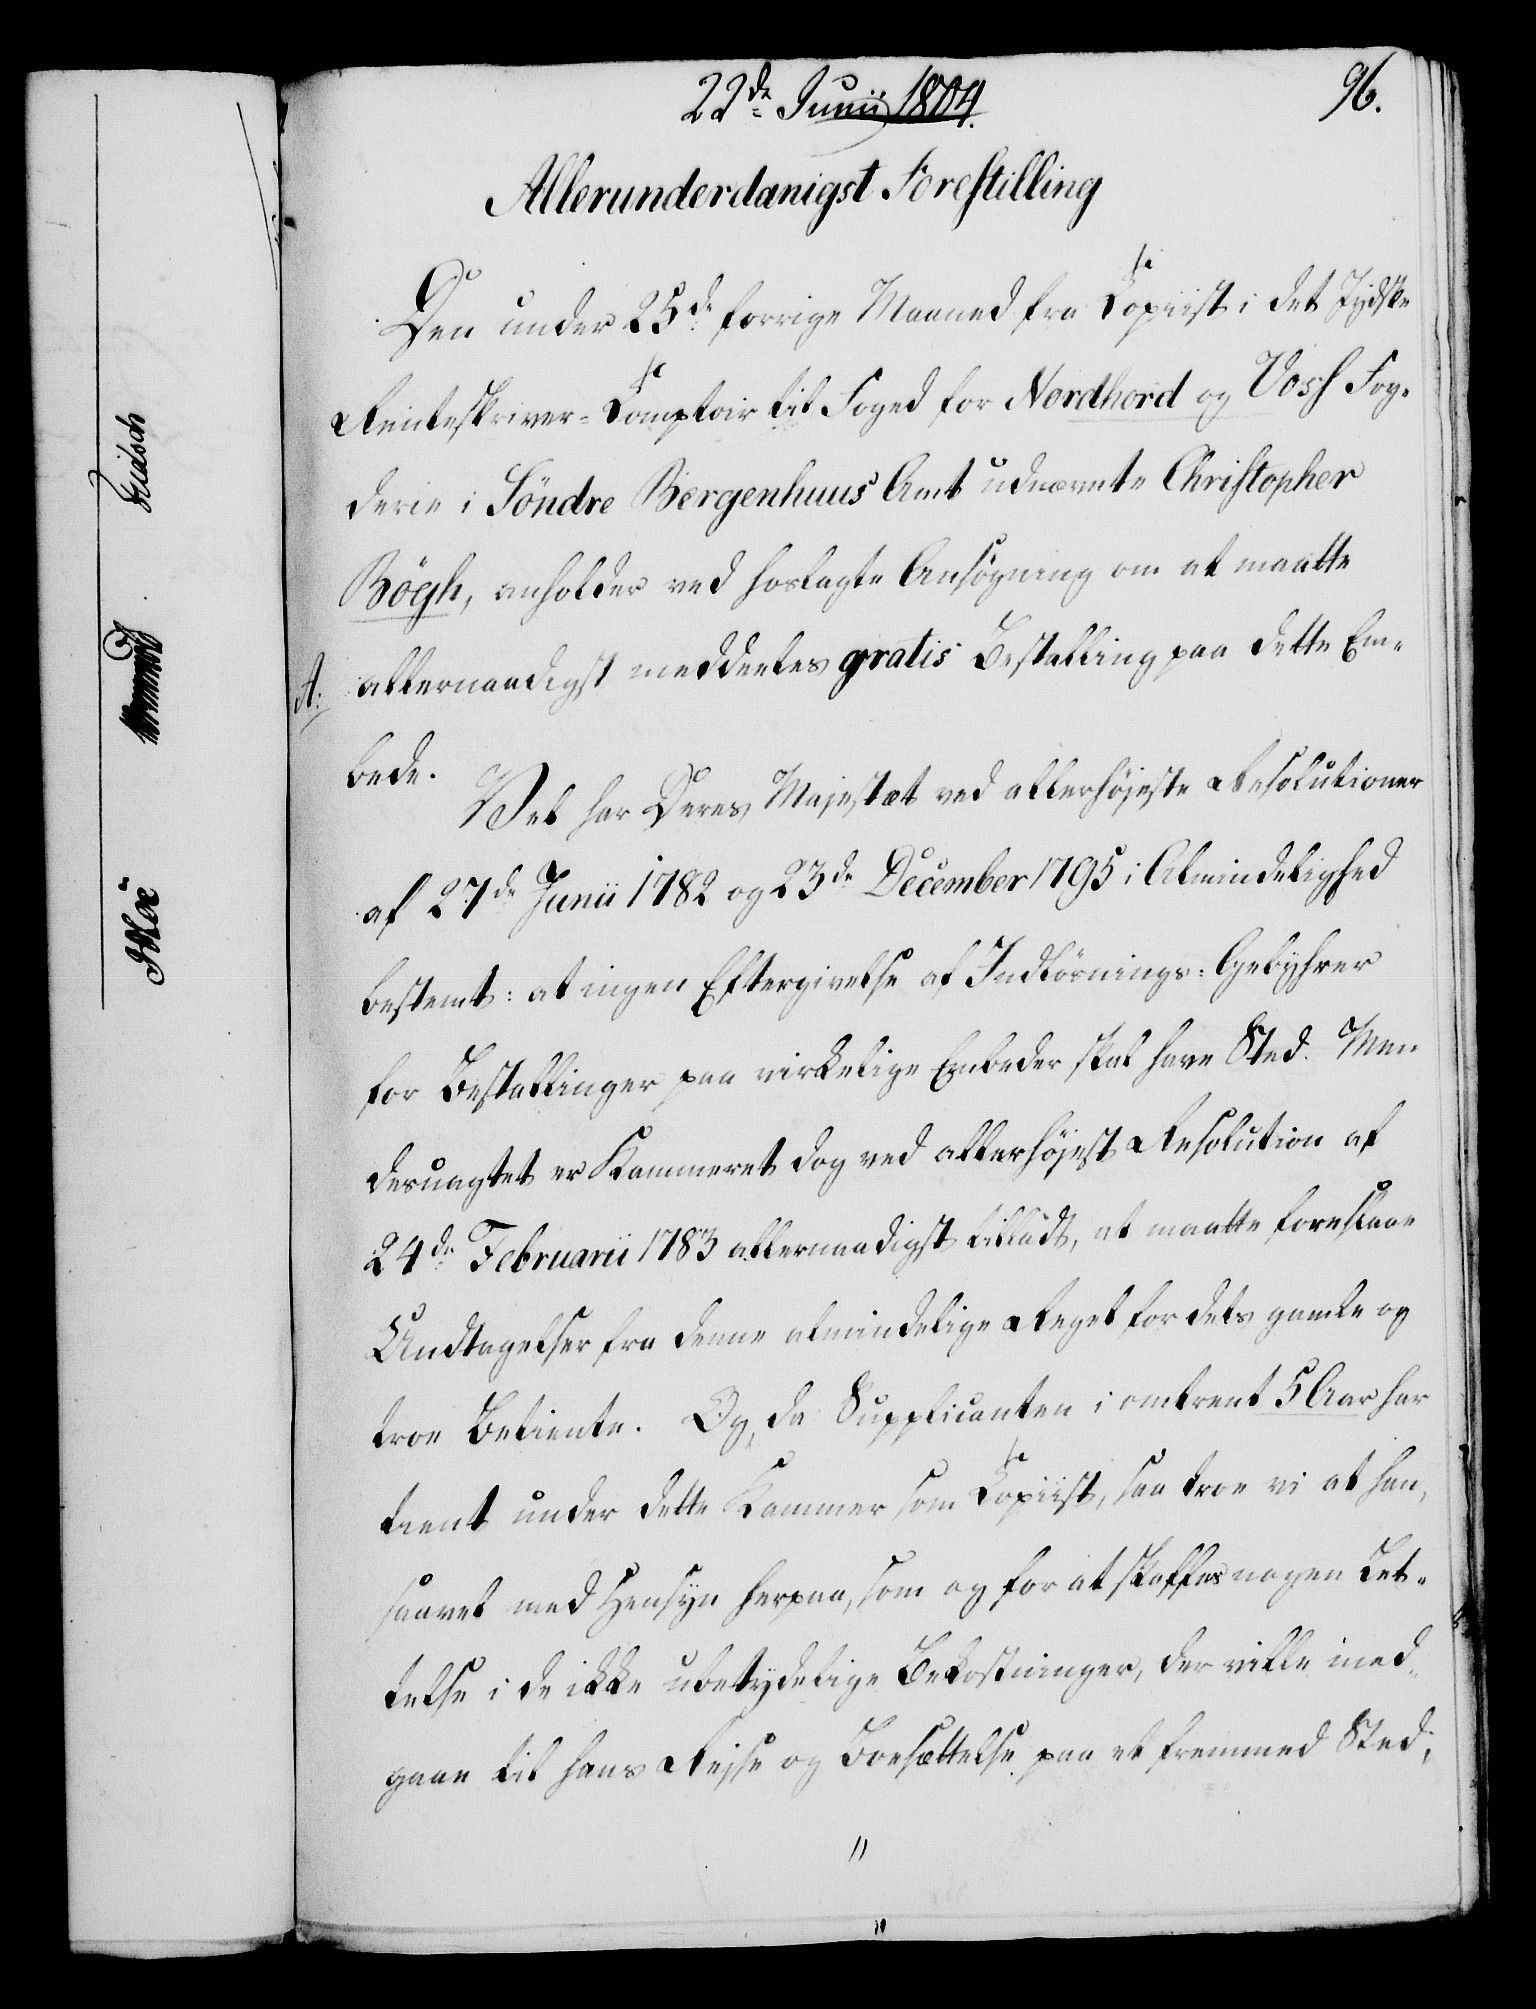 22de Junii 1804.
96.
Allerunderdanigst Forestilling
Den under 25de forrige Maaned fra Copiist i det Jydske
Renteskriver-Comptoir til Foged for Nordhord og Voss Fog-
derie i Söndre Bergenhuus Amt udnævnte Christopher
Bögh, anholder ved hoslagte Ansøgning om at maatte
A: allernaadigst meddeeles gratis Bestalling paa dette Em-
bede.
Vel har Deres Majestæt ved allerhöjeste Resolutioner
af 27de Junii 1782 og 23de December 1795 i Almindelighed
bestemt: at ingen Eftergivelse af Indlösnings-Gebyhrer
for Bestallinger paa virkelige Embeder skal have Sted. Men
desuagtet er Kammeret dog ved allerhöjest Resolution af
24de Februarii 1783 allernaadigst tilladt, at maatte foreslaae
Undtagelser fra denne almindelige Regel for dets gamle og
troe Betiente. Og, da Supplicanten i omtrent 5 Aar har
tient under dette Kammer som Copiist, saa troe vi at han,
saavel med Hensyn herpaa, som og for at skaffes nogen Let-
telse i de ikke ubetydelige Bekostninger, der ville med-
gaae til hans Rejse og Boesættelse paa et fremmed Sted,